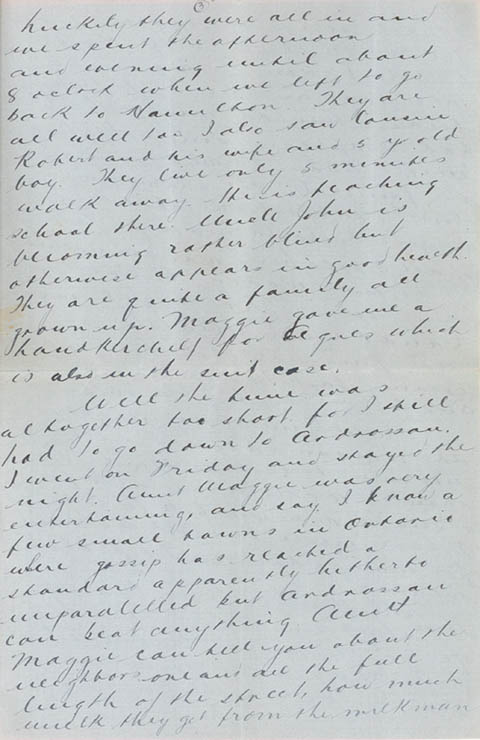 3
Luckily they were all in and
we spent the afternoon
and evening until about
8 oclock when we left to go
back to Hamilton. They are
all well too. I also saw Cousin
Robert and his wife and 5 y old
boy. They live only 5 minutes
walk away. He is teaching
school there. Uncle John is
becoming rather blind but
otherwise appears in good health.
They are quite a family all
grown up. Maggie gave me a
handkerchief for Agnes which
is also in the suit case.
Well the time was
altogether too short for I still
had to go down to Ardrossan.
I went on Friday and stayed the
night. Aunt Maggie was very
entertaining, and say I know a
few small towns in Ontario
where gossip has reached a
standard apparently hitherto
unparalelled but Ardrossan
can beat anything. Aunt
Maggie can tell you about the
neighbors one and all the full
length of the street, how much
milk they get from the milkman